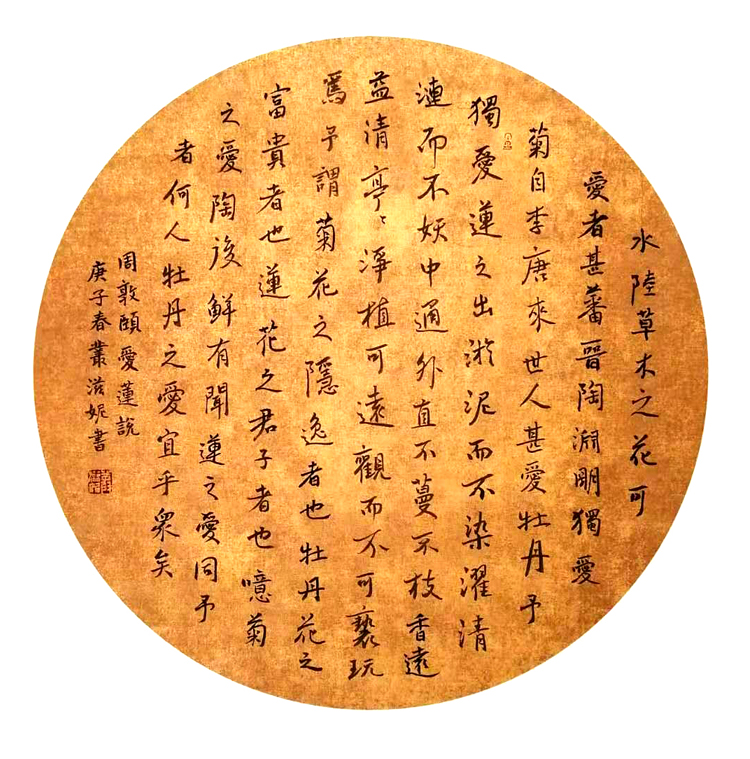 水陸草木之花可
愛者甚蕃晉陶淵明獨愛
菊自李唐來世人甚愛牡丹予
獨愛蓮之出淤泥而不染濯清
漣而不妖中通外直不蔓不枝香遠
益清亭亭淨植可遠觀而不可褻玩
焉予謂菊花之隱逸者也牡丹花之
富貴者也蓮花之君子者也噫菊
之愛陶後鮮有聞蓮之愛同予
者何人牡丹之愛宜乎衆矣
周敦頤愛蓮說
庚子春叢滋妮書